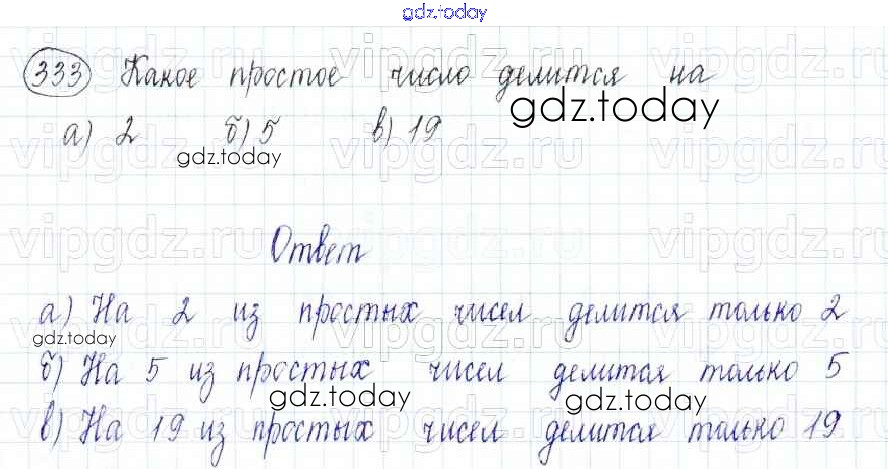 gdz.today
333 Какое простое число делится на
gdz.today
а) 2 б) 5 в) 19
gdz.today
vipgdz.ru vipgdz.ru vipgdz.ru
Ответ
а) На 2 из простых чисел делится только 2
gdz.today
б) На 5 из простых чисел делится только 5
gdz.today gdz.today
в) На 19 из простых чисел делится только 19